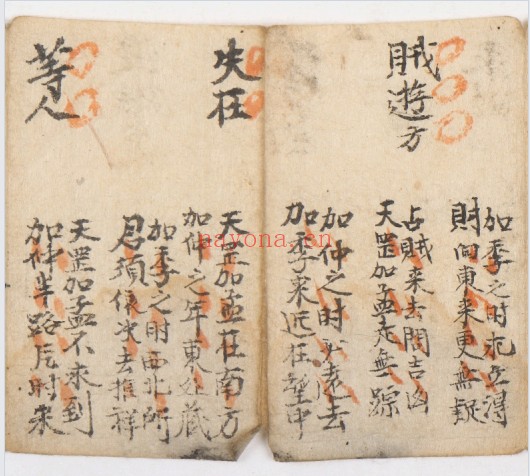 加季之時北方得
財向東來更無疑
賊遊方
占賊來去問吉凶
天罡加孟走無踪
加仲之時不遠去
加季來近在望中
失在
天罡加孟在南方
加仲之年東处藏
加季之时西北所
君須依次去推祥
等人
天罡加孟不來到
加仲半路辰时来
nayona.cn